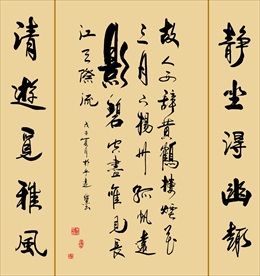 静坐得幽趣
故人西辭黄鶴樓煙花
三月下揚州孤帆遠
影碧空盡唯見長
江天際流
清遊覓雅風